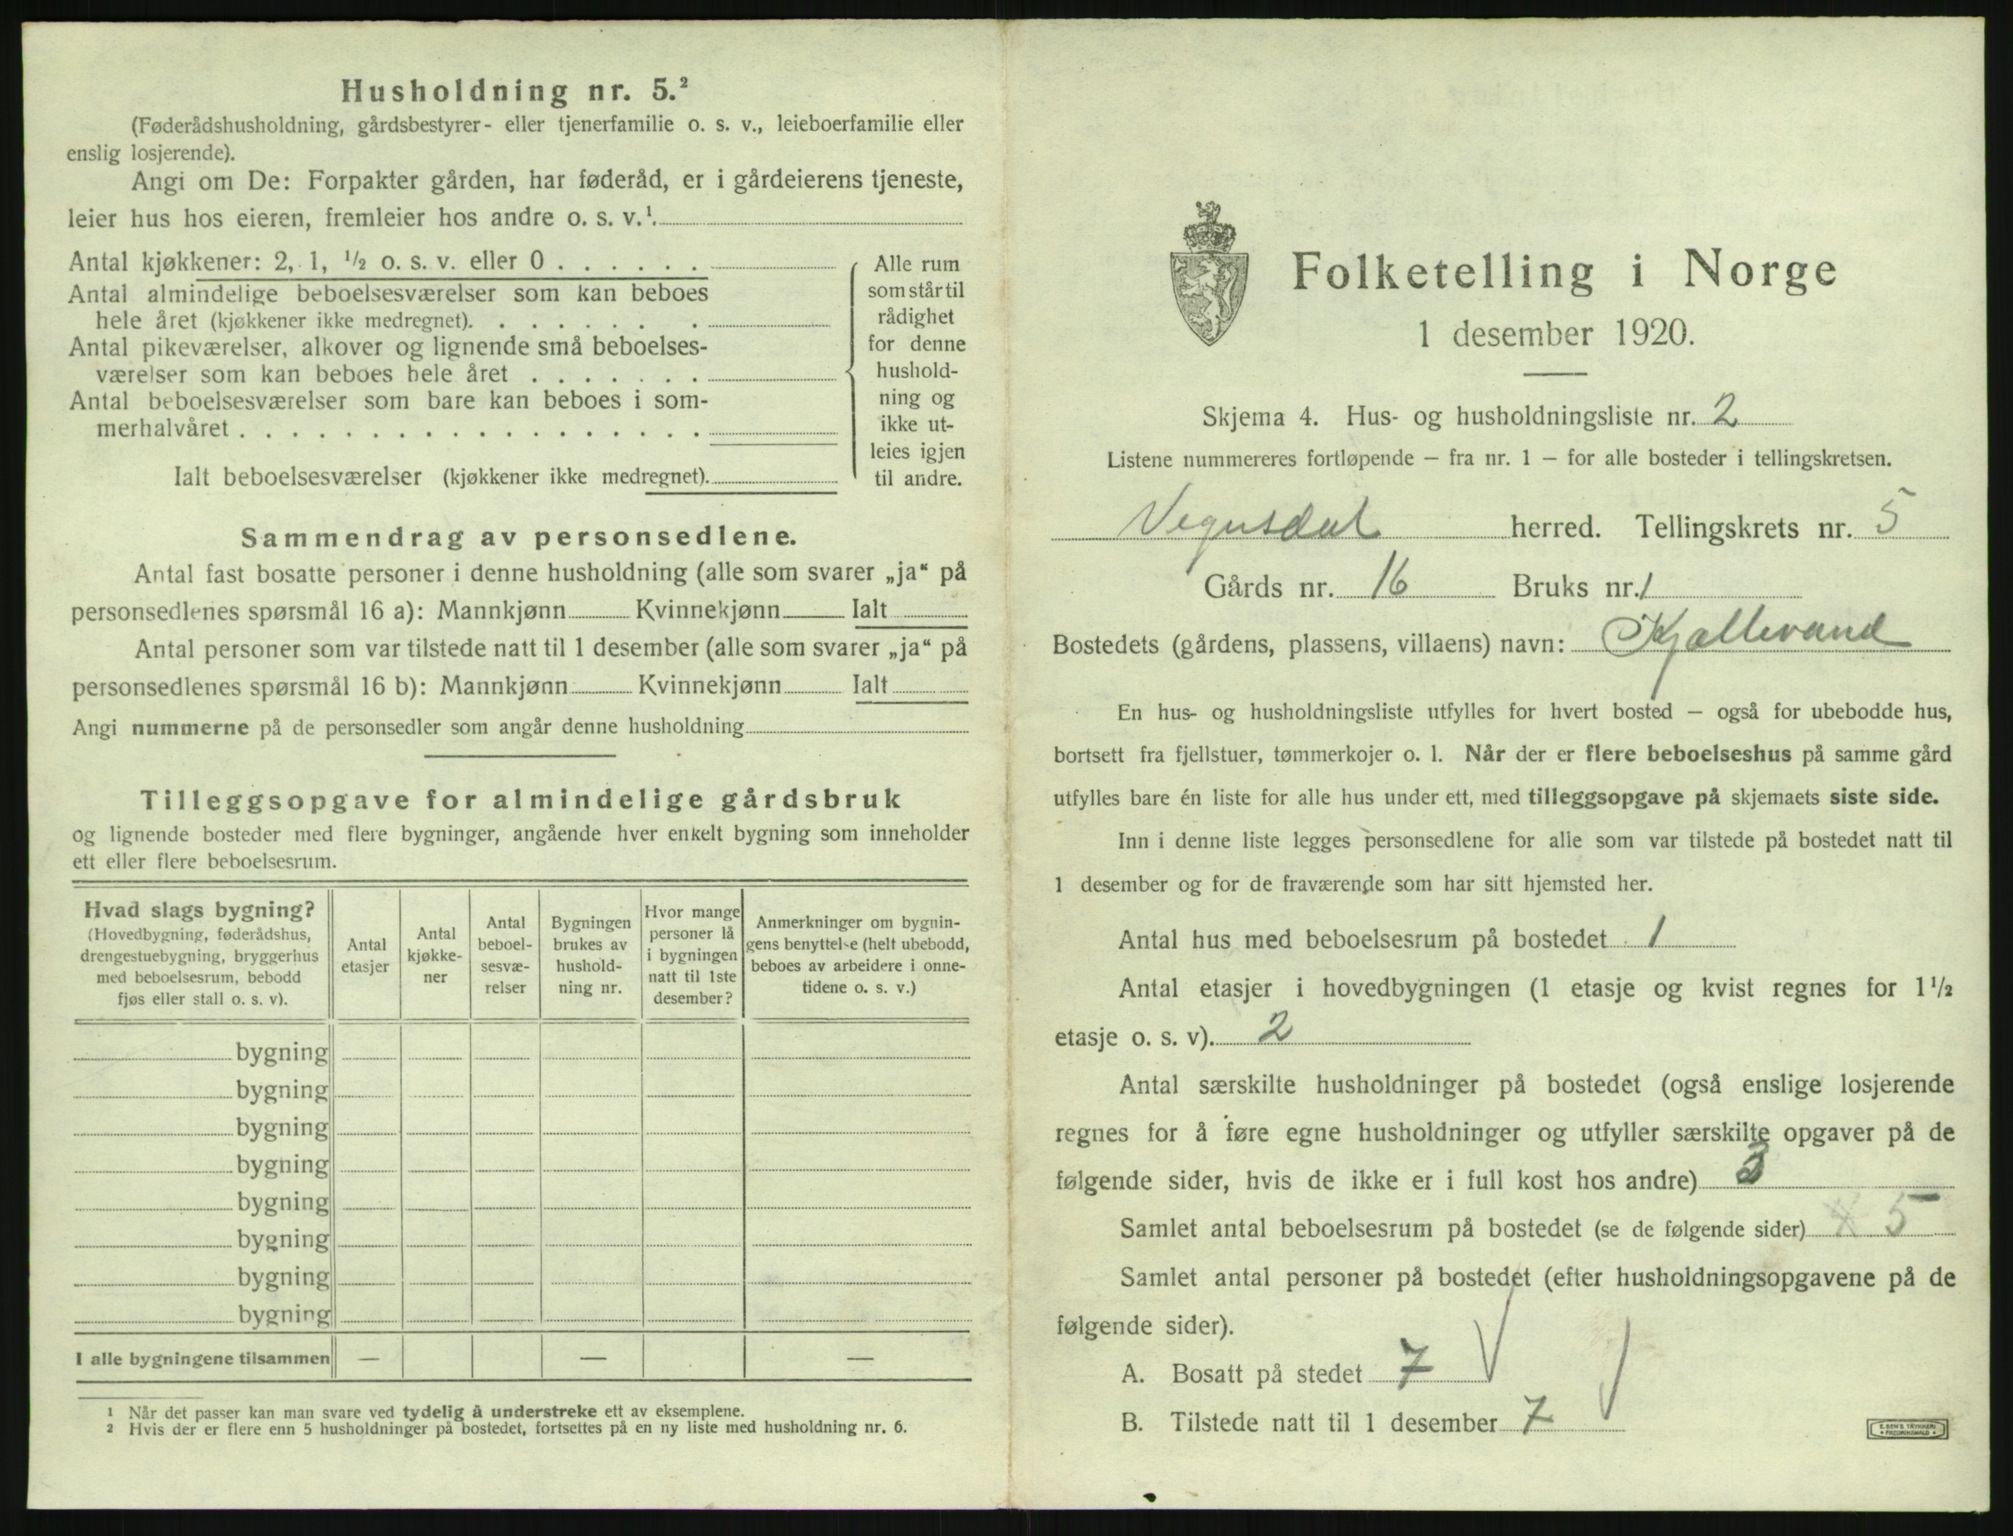 Husholdning nr. 5.²
(Føderådshusholdning, gårdsbestyrer- eller tjenerfamilie o. s. v., leieboerfamilie eller
enslig losjerende).
Angi om De: Forpakter gården, har føderåd, er i gårdeierens tjeneste,
leier hus hos eieren, fremleier hos andre o. s. v.¹.
Antal kjøkkener: 2, 1, ¹/₂ o. s. v. eller 0 . . . . . .
Antal almindelige beboelsesværelser som kan beboes
hele året (kjøkkener ikke medregnet). . . . . . . . .
Antal pikeværelser, alkover og lignende små beboelses-
værelser som kan beboes hele året . . . . . . .
Antal beboelsesværelser som bare kan beboes i som-
merhalvåret . . . . . . . . . . . . . . . . . .
Ialt beboelsesværelser (kjøkkener ikke medregnet).
Alle rum
som står til
rådighet
for denne
hushold-
ning og
ikke ut-
leies igjen
til andre.
Sammendrag av personsedlene.
Antal fast bosatte personer i denne husholdning (alle som svarer „ja“ på
personsedlenes spørsmål 16 a): Mannkjønn Kvinnekjønn Ialt
Antal personer som var tilstede natt til 1 desember (alle som svarer „ja“ på
personsedlenes spørsmål 16 b): Mannkjønn Kvinnekjønn Ialt
Angi nummerne på de personsedler som angår denne husholdning
Tilleggsopgave for almindelige gårdsbruk
og lignende bosteder med flere bygninger, angående hver enkelt bygning som inneholder
ett eller flere beboelsesrum.
Hvad slags bygning?
(Hovedbygning, føderådshus,
drengestuebygning, bryggerhus
med beboelsesrum, bebodd
fjøs eller stall o. s. v).
Antal
etasjer
Antal
kjøkke-
ner
Antal
beboel-
sesvæ-
relser
Bygningen
brukes av
hushold-
ning nr.
Hvor mange
personer lå
i bygningen
natt til 1ste
desember?
Anmerkninger om bygnin-
gens benyttelse (helt ubebodd,
beboes av arbeidere i onne-
tidene o. s. v.)
bygning
bygning
bygning
bygning
bygning
bygning
bygning
bygning
I alle bygningene tilsammen — — —
¹ Når det passer kan man svare ved tydelig å understreke ett av eksemplene.
² Hvis der er flere enn 5 husholdninger på bostedet, fortsettes på en ny liste med husholdning nr. 6.
Folketelling i Norge
1 desember 1920.
Skjema 4. Hus- og husholdningsliste nr. 2
Listene nummereres fortløpende – fra nr. 1 – for alle bosteder i tellingskretsen.
Vegusdal herred. Tellingskrets nr. 5
Gårds nr. 16 Bruks nr. 1
Bostedets (gårdens, plassens, villaens) navn: Kjallevand
En hus- og husholdningsliste utfylles for hvert bosted – også for ubebodde hus,
bortsett fra fjellstuer, tømmerkojer o. l. Når der er flere beboelseshus på samme gård
utfylles bare én liste for alle hus under ett, med tilleggsopgave på skjemaets siste side.
Inn i denne liste legges personsedlene for alle som var tilstede på bostedet natt til
1 desember og for de fraværende som har sitt hjemsted her.
Antal hus med beboelsesrum på bostedet 1
Antal etasjer i hovedbygningen (1 etasje og kvist regnes for 1 ¹/₂
etasje o. s. v). 2
Antal særskilte husholdninger på bostedet (også enslige losjerende
regnes for å føre egne husholdninger og utfyller særskilte opgaver på de
følgende sider, hvis de ikke er i full kost hos andre) 3
Samlet antal beboelsesrum på bostedet (se de følgende sider) 5
Samlet antal personer på bostedet (efter husholdningsopgavene på de
følgende sider).
A. Bosatt på stedet 7
B. Tilstede natt til 1 desember 7